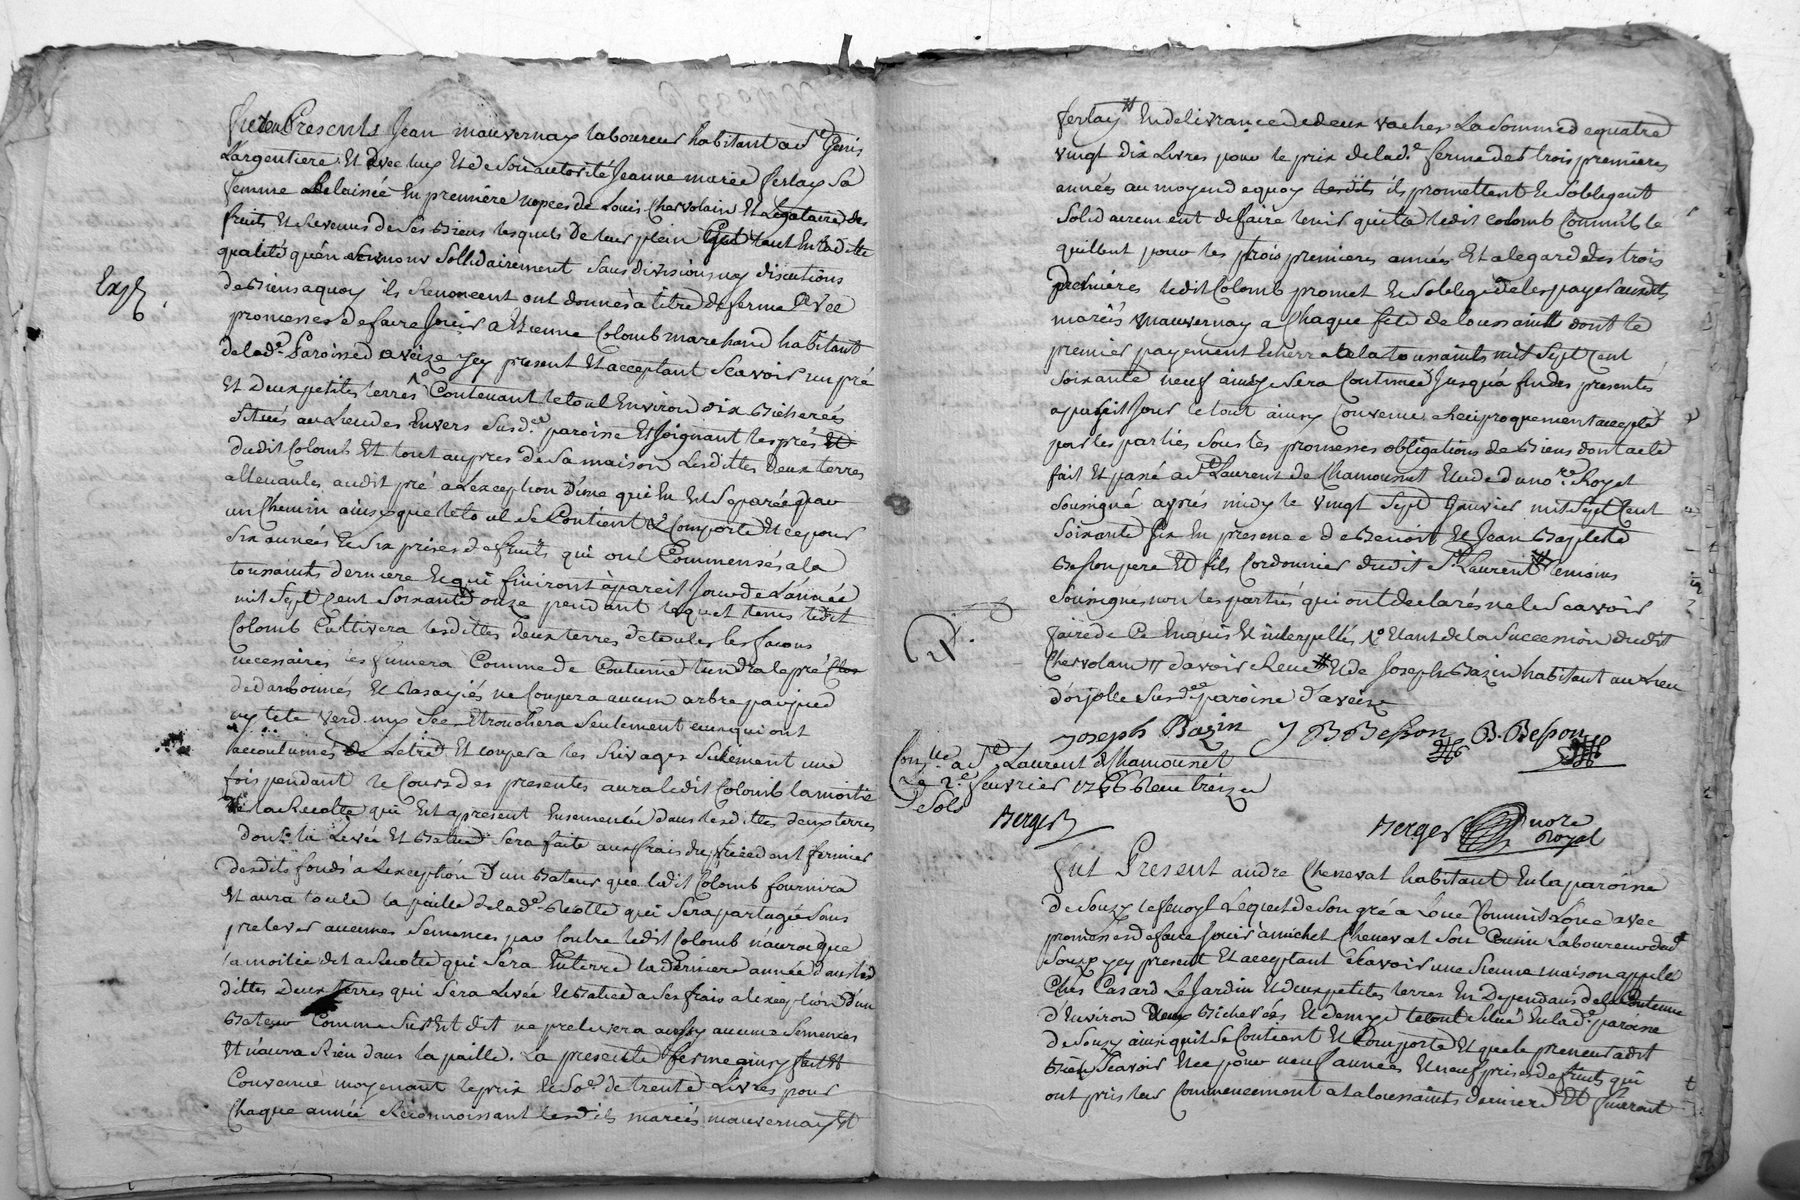 furent Presents Jean mauvernay laboureur habitant a St Genis
Largentiere Et avec luy Et de Son autorité Jeanne marie ferlay Sa
femme delaissée En premiere nopces de Louis Chervolain Et Legataire des
fruits Et Revenus de Ses Biens lesquels de leur plein gré tant En laditte
qualité qu'en leurs noms Sollidairement Sans division ny discutions
de Biens a quoy ils Renoncent ont donnés à titre de ferme avec
promesses de faire Jouir a Etienne Colomb marchand habitant
de lade Paroisse d'aveize Jcy present Et acceptant Scavoir un pré
Et deux petites terres Contenant le tout Environ dix Bicherées
Situés au Lieu des Envers Susde paroisse Et Joignant les prés Et
dudit Colomb Et tout aupres de Sa maison Lesdittes deux terres
attenantes audit pré a Lexception d'une qui En Est Separée par
un Chemin ainsy que le tout Se Contient & Comporte Et ce pour
Six années Et Six prises de fruits qui ont Commensés a la
toussaints derniere Et qui finiront à pareil Jour de Lannée
mil Sept Cent Soixante onze pendant lequel tems ledit
Colomb Cultivera lesdittes deux terres de toutes les facons
necessaires les fumera Comme de Coutume tiendra le pré Clos
dedarbonnés Et Rasayiés ne Coupera aucun arbre par pied
ny tete verd ny Sec Etronchera Seulement ceux qui ont
accoutumés de Letre Et coupera les Rivages Sulement une
fois pendant le Cours des presentes aura ledit Colomb la moitié
de la Recolte qui Est apresent Ensemencée dans lesdittes deux terres
dont la Levée Et Battue Sera faite aux frais du precedent fermier
desdits fonds a Lexception d'un Bateur que ledit Colomb fournira
Et aura toute la paille de lade Recolte qui Sera partagée Sans
prelever aucunes Semences par Contre ledit Colomb n'aura que
la moitié de la Recolte qui Sera Enterre la derniere année dans les
dittes deux terres qui Sera Levée Et Batue a Ses frais a lexception d'un
Bateur Comme Sus Est dit ne prelevera aussy aucune Semences
Et n'aura Rien dans la paille. La presente ferme ainsy fait Et
Convenue moyenant le prix Et Soe de trente Livres pour
Chaque année Reconnoissant lesdits mariés mauvernay Et
Expé
ferlay En delivrance de deux vaches La Somme de quatre
vingt dix Livres pour le prix de lade ferme des trois premieres
années au moyen de quoy lesdits ils promettent Et Sobligent
Solidairement de faire tenir quitte ledit Colomb Comm'ils le
quittent pour les trois premieres années Et a legard des trois
dernieres ledit Colomb promet Et Soblige de les payer auxdits
mariés mauvernay a Chaque fete de toussaints dont le
premier payement Echerra a la toussaints mil Sept Cent
Soixante neuf ainsy Sera Continué Jusqu'a fin des presentes
a pareil Jour le tout ainsy Convenu Reciproquement accepté
par les parties Sous les promesses obligations de Biens dont acte
fait Et passé a St Laurent de Chamousset Etude du nore Royal
Soussigné avrés midy le vingt Sept Janvier mil Sept Cent
Soixante Six En presence de Benoit Et Jean Baptiste
Besson pere Et fils Cordonnier dudit St Laurent temoins
Soussignes non les parties qui ont declarés ne le Scavoir
faire de Ce Enquis Et interpellés étant de la Succession dudit
Chervolain davoir Receu Et de Joseph Bazin habitant au Lieu
d'orjolle Susde paroisse d'aveize
Joseph Bazin J B Besson B. Besson
Conlle a St Laurent de Chamousset
Le 2e fevrier 1766 Receu treize
Sols Berger
Berger nore
Royal
fut Present andre Chenevat habitant En la paroisse
de Souzy Lequel de Son gré a Loue Comm'il Loue avec
promesses de faire Jouir à michel Chenevat Son Cousin Laboureur dudt
Souzy Jcy present Et acceptant Scavoir une Sienne maison appellé
Chés Casard Le Jardin Et deux petites terres En Dependans de la Contenue
d'Environ deux Bicherées Et demy le tout Situé En lade paroisse
de Souzy ainsi qu'il Se Contient Et Comporte Et que le preneur a dit
Bien Scavoir Et ce pour neuf années Et neuf prises de fruits qui
ont pris leur Commencement a la toussaints derniere Et finiront